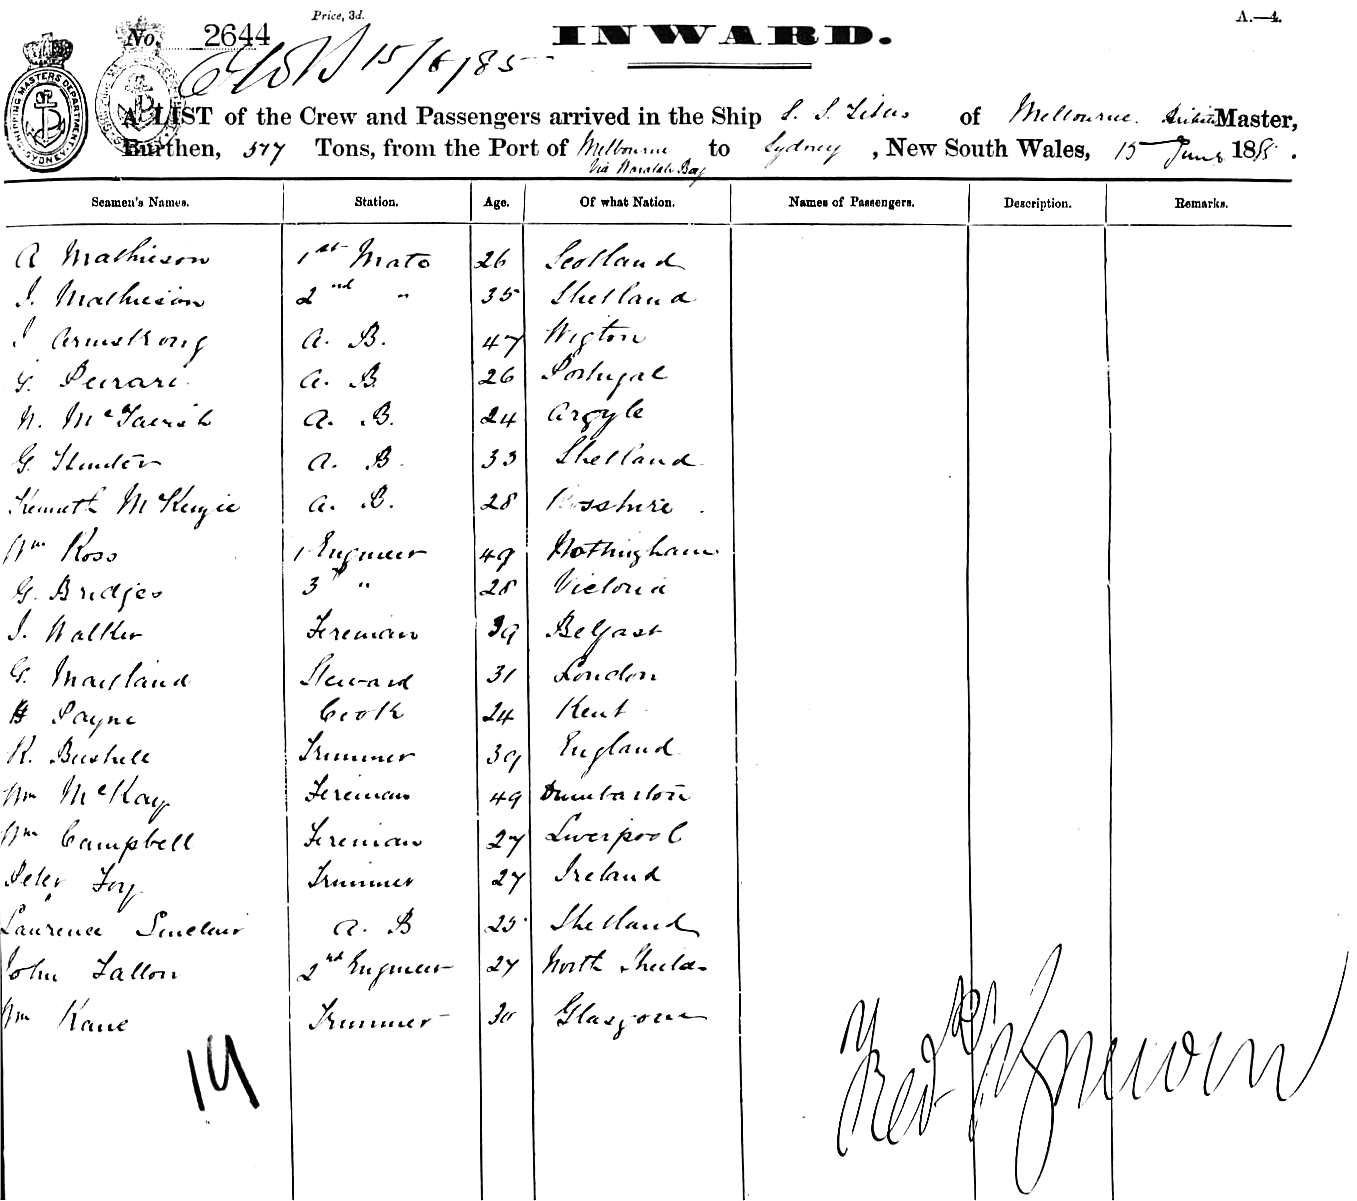 Price, 3d.
A.—4.
No. 2644
INWARD.
15/6/85
SHIPPING MASTERS DEPARTMENT SYDNEY
A LIST of the Crew and Passengers arrived in the Ship S. S. Titus of Melbourne. Master,
Burthen, 577 Tons, from the Port of Melbourne to Sydney, New South Wales, 15 June 1885.
Via Bay
Seamen's Names. Station. Age. Of what Nation. Names of Passengers. Description. Remarks.
A Mathieson 1st Mate 26 Scotland
J. Mathieson 2nd " 35 Shetland
J Armstrong A. B. 47 Wigton
A. B. 26 Portugal
N. McTavish A. B. 24 Argyle
G. Hunter A. B. 33 Shetland
Kenneth McKenzie A. B. 28 Rosshire.
Wm Ross 1 Engineer 49 Nothingham
G. Bridges 3rd " 28 Victoria
J. Walker Fireman 39 Belfast
G. Maitland Steward 31 London
H Payne Cook 24 Kent
R. Bushell Trimmer 39 England
Wm McKay Fireman 49 Dumbarton
Wm Campbell Fireman 27 Liverpool
Peter Foy Trimmer 27 Ireland
Laurence Sinclair A. B 25 Shetland
John Fallon 2nd Engineer 27 North Shields
Wm Kane Trimmer 30 Glasgow
19